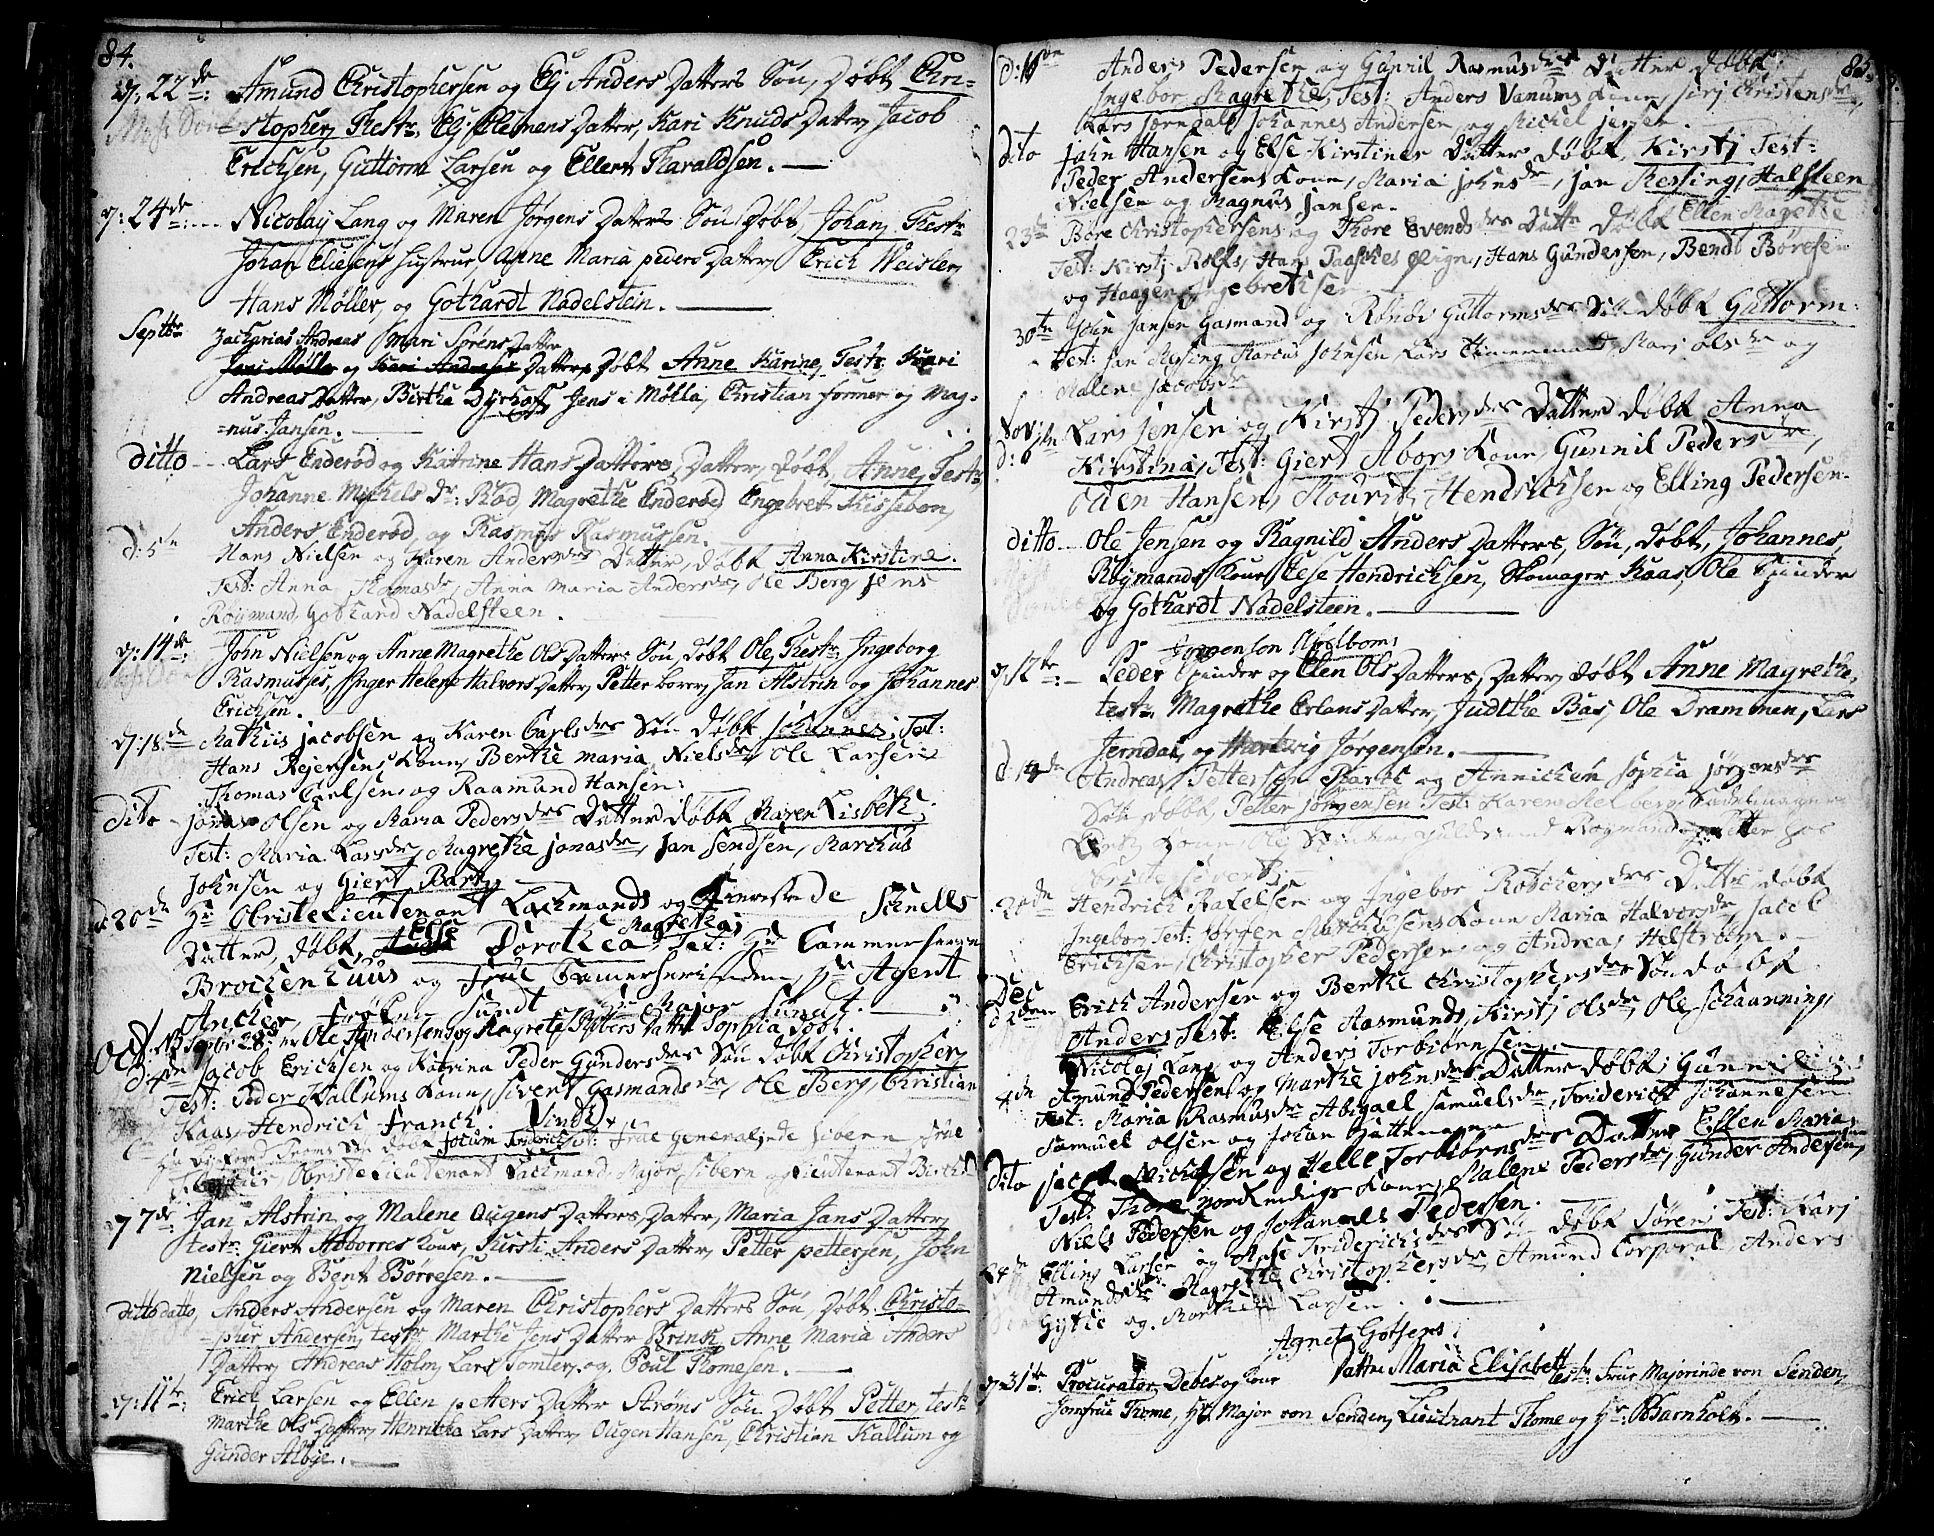 84.
d: 22de Amund Christophersen og Elj Anders Datters Søn, Døbt Chri-
=stopher, Testr. Elj Clemens Datter, Kari Knuds Datter, Jacob
Erichsen, Guttorm Larsen og Ellert Tharaldsen.
d: 24de Nicolay Lang og Maren Jørgens Datters Søn Døbt, Johan, Testr
Johan Eliesens Hustrue, Anne Maria peders Datter, Erich Weisler,
Hans Møller, og Gothardt Nadelstein.
Septbr Zacharias Andreas Mari Sørens Datter
og Datter, Døbt Anne Karine, Testr. Kari
Andreas Datter, Birthe Dyrhof, Jens i Mølla, Christian former og Mag-
=nus Jansen.
ditto Lars Enderød og Katrine Hans Datters, Datter, døbt, Anne, Testr,
Johanne Mickels dr: Rød, Magrethe Enderød, Engebret Kissebon,
Anders Enderød, og Rasmus Rasmussen.
d: 5te Hans Nielsen og Karen Andersdrs Datter, døbt Anna Kirstine.
Test: Anna Thomasdr, Anna Maria Andersdr, Ole Berg, Jens
Røymand, Gothard Nadelsteen.
d: 14de John Nielsen og Anne Magrethe Ols Datters Søn, Døbt Ole, Testr. Ingeborg
Rasmusses, Inger Helene Halvors Datter, Petter Lorer, Jan Alstrin og Johannes
Erichsen.
d: 18de Mathiis Jacobsen og Karen Carlsdrs Søn Døbt Johannes; Test:
Hans Rejersens Kone, Berthe Maria Nielsdr, Ole Larsen
Thomas Carlsen og Raamund Hansen:
Dito Jonas Olsen og Maria Pedersdrs Datter Døbt Maren Lisbeth;
Test: Maria Larsdr, Magrethe Jonasdr, Jan Sendsen, Marchus
Johnsen og Giert Bart
d: 20de Hr Obriste Lieutenant Lachmands og Schnells
Datter, døbt, Else Dorothea Magrethe; Test: Hr Cammerherre
Brochenhuus og Frue Cammerherinden, Hr Agent
Ancher, Frøken Sundt Hr Major Sundt.
Oct: NB Septbr 28 Ole Andersens og Magrete Siversdatter Sophia døbt.
d: 4de Jacob Erichsen og Katrina Peder Gundersdrs Søn døbt Christopher,
Test: Peder Kallums Kone, Sivert Gasmandsdr, Ole Berg, Christian
Kaas, Hendrich Franck. Vinds.
6te Søn døbt Jocum Friderich Test: Frue Generalinde Sibern Frue
Obriste Lieutenant Lachmand, Major Sibern og Lieutenant
d 7de Jan Alstrin og Malene Ougens Datters, Datter, Maria Jans Datter,
testr. Giert Abborres kone, Kirsti Anders Datter, Petter pettersen, John
Nielsen og Bent Børresen.
ditto datto, Anders Andersen og Maren Christophers Datters Søn, Døbt Christo-
=pher Andersen, testr Marthe Jens Datter Brink, Anne Maria Anders
Datter, Andreas Holm, Lars Tomter, og Poul Thomesen.
d: 11te Erick Larsen og Ellen petters Datter Strøms Søn Døbt Petter, testr.
Marthe Ols Datter, Henricka Lars Datter, Ougen Hansen, Christian Kallum og
Gunder Albye.
85.
Anders Pedersen og Gunnil Rasmusdrs Datter Døbt
Ingebor Magrethe, Test: Anders Vanums Kone, Siri Christensdr,
Lars Jerndal, Johannes Andersen og Michel Jensen.
dito John Hansen og Else Kirstines Datter Døbt, Kirstj Test:
Peder Andersens Kone, Maria Johnsdr, Jan Ressing, Halsteen
Nielsen og Magnus Jansen.
23de Børe Christophersens og Thore Svendsdrs Datter Døbt Ellen Magrethe
Test: Kirstj Rolfs, Hans Paasches pige, Hans Gundersen, Bendt Børesen
og Haagen Ingebretsen
30te John Jansen Gasmand og Rønøv Guttormsdrs Søn døbt Guttorm:
Test: Jan Resing, Marcus Johnsen, Lars Timmermand, Marj Olsdr og
Malene Jacobsdr
Nov: Lars Jensen og Kirstj Pedersdrs Datter Døbt Anna
d: Kirstina, Test: Giert Abors Kone, Gunnil Pedersdr,
Eden Hansen, Mourits Hendrichsen og Elling Pedersen.
ditto Ole Jensen og Ragnild Anders Datters, Søn, Døbt, Johannes,
Røymands Kone, Ese Hendrichsen, Skomager Kaas, Ole Spinder
og Gothardt Nadelsteen.
Jørgensen
d. 12te Peder Spinder og Elen Ols Datters, Datter, Døbt Anne Magrethe,
testr. Magrethe Erlans Datter, Judithe Bas, Ole Drammen, Lars
Jerndal, og Hartwig Jørgensen.
d. 14de Andreas Pettersen og Annichen Sophia Jørgensdrs
Søn døbt, Petter Jørgensen Test: Karen Melberg, Sadelmager
Kone, Ole Røgmand og Petter
20de Hendrich Raxelsen og Ingebor Datter døbt
Ingebor, Test: Jørgen Marchusens Kone, Maria Halvorsdr, Jacob
Erichsen, Christopher Pedersen og Andreas Helstrøm.
Dec Erich Andersen og Berthe Christophersdrs Søn døbt
Anders Test: Else Aasmunds, Kirstj Olsdr, Ole Schaanning,
Nicolaj Lang og Anders Torbiørnsen.
4de Amund Pedersen og Marthe Johnsdrs Datter døbt; Gunnil
Test: Maria Rasmusdr, Abigael Samuelsdr, Friderich Johannesen
Samuel Olsen og Johan Huttemager
dito Jacob Michelsen og Helle Torbiørnsdrs Datter Ellen Maria
Test: Thore Nordendigs Kone, Malene Pedersdr, Gunder Andersen,
Niels Pedersen og Johannes Pedersen.
Elling Larsen og Mase Friderichsdrs Søn døbt Søren; Test: Karj
Amundsdr Magrethe Christophersdr, Amund Corporal, Anders
Gythe og Morthen Larsen.
Agnet Gotsens
d. 31te: Procurator Debes og kone Datter Maria Elisabeth testr. Frue Majorinde von Senden,
Jomfrue Thome, Hr Major von Senden, Lieutnant Thome og Hr. Barnholt.